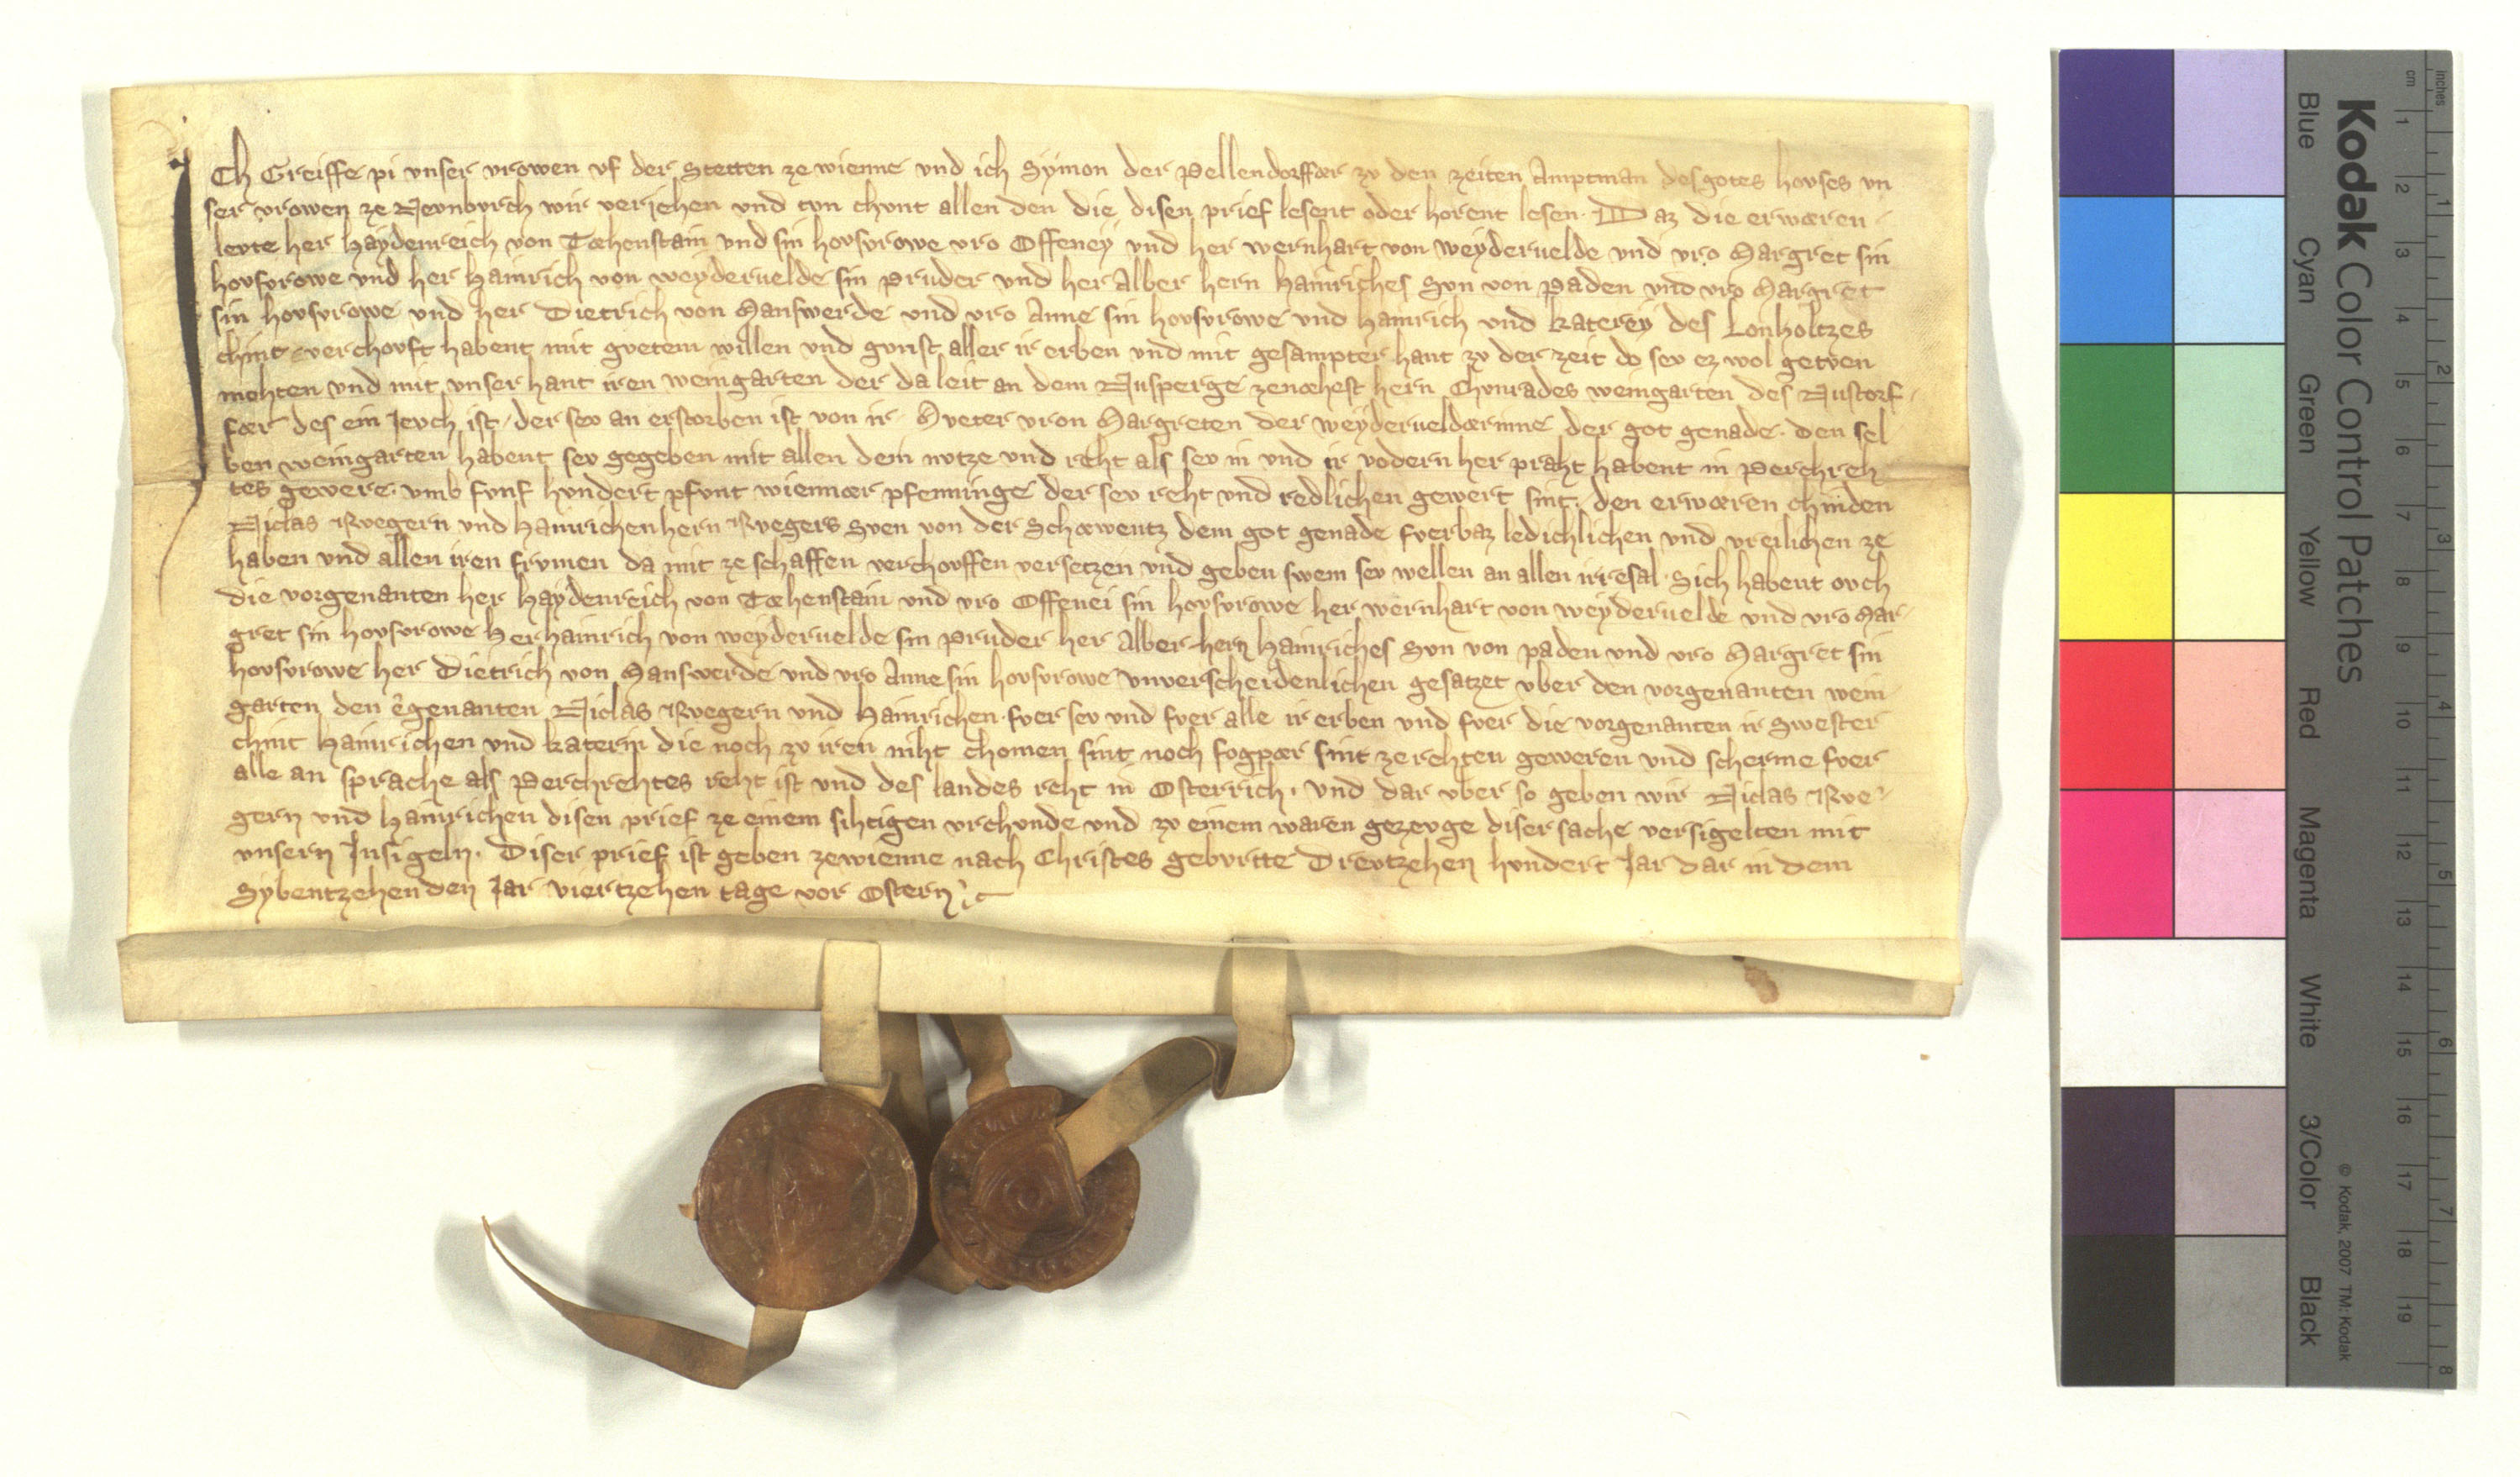 ICh Greiffe pi vnser vrowen vf der Stetten ze wienne vnd ich Symon der Pellendorffær zv den zeiten Amptman des gotes hovses vn
ser vrowen ze Nevnbvrch wir veriehen vnd tvn chvnt allen den die disen prief lesent oder horent lesen. Daz die erwæren
levte her Haydenreich von Tæhenstain vnd sin hovsvrowe vro Offeney vnd her wernhart von weydervelde vnd vro Margret sin
hovsvrowe vnd her Hainrich von weydervelde sin Pruder vnd her Alber hern Hainriches Svn von Paden vnd vro Margret
sin hovsvrowe vnd her Dietrich von Manswerde vnd vro Anne sin hovsvrowe vnd Hainrich vnd katerey des Lonholtzes
chint verchovft habent mit gvetem willen vnd gvnst aller ir erben vnd mit gesampter hant zv der zeit do sev ez wol getven
mohten vnd mit vnser hant iren weingarten der da leit an dem Nusperge zenæhest hern Chvnrades weingarten des Nustorf
fær des ein Jevch ist. der sev an erstorben ist von ir Mveter vron Margreten der weyderveldærinne der got genade. den sel
ben weingarten habent sev gegeben mit allen dem nvtze vnd reht als sev in vnd ir vodern her praht habent in Perchreh
tes gewere. vmb fvnf hvndert pfvnt wiennær pfenninge der sev reht vnd redlichen gewert sint. den erwæren chinden
Niclas Rvegern vnd Hainrichen hern Rvegers Sven von der Schæwentz dem got genade fverbaz ledichlichen vnd vreilichen ze
haben vnd allen iren frvmen da mit ze schaffen verchovffen versetzen vnd geben swem sev wellen an allen irresal. Sich habent ovch
die vorgenanten her Haydenreich von Tæhenstain vnd vro Offenei sin hovsvrowe her wernhart von weydervelde vnd vro Mar
gret sin hovsvrowe her hainrich von weydervelde sin Pruder her Alber hern Hainriches Svn von paden vnd vro Margret sin
hovsvrowe her Dietrich von Manswerde vnd vro Anne sin hovsvrowe vnverscheidenlichen gesatzet vber den vorgenanten wein
garten den êgenanten Niclas Rvegern vnd Hainrichen. fver sev vnd fver alle ir erben vnd fver die vorgenanten ir Swester
chint Hainrichen vnd katerin die noch zv iren niht chomen sint noch fogpær sint ze rehten geweren vnd scherme fver
alle an sprache als Perchrehtes reht ist vnd des landes reht in Osterrich. vnd dar vber so geben wir Niclas Rve
gern vnd Hainrichen disen prief ze einem sihtigen vrchvnde vnd zv einem waren gezevge diser sache versigelten mit
vnsern Insigeln. Diser prief ist geben ze wienne nach Christes gebvrtte Drevtzehen hvndert Jar dar in dem
Sybentzehenden Jar viertzehen tage vor Ostern
Kodak Color Control Patches
Blue Cyan Green Yellow Red Magenta White 3/Color Black
© Kodak, 2007 TM: Kodak
cm 1 2 3 4 5 6 7 8 9 10 11 12 13 14 15 16 17 18 19
inches 1 2 3 4 5 6 7 8